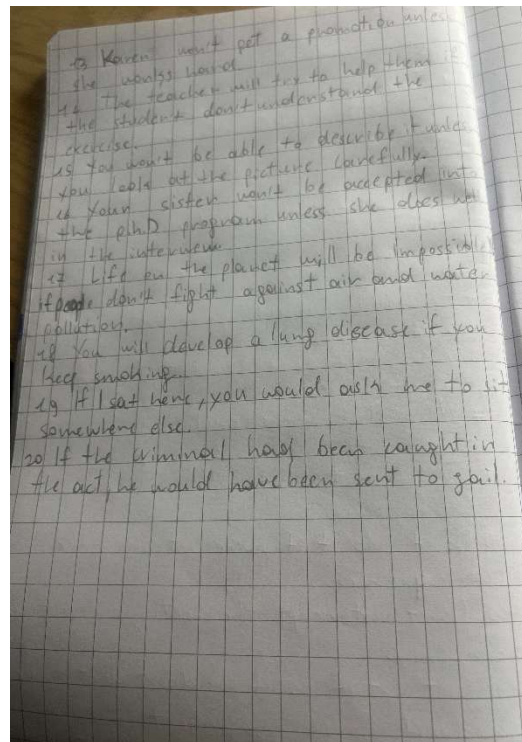 13 Karen won't get a promotion unless
she works hard
14 The teacher will try to help them if
the student don't understand the
exercise.
15 You won't be able to describe it unless
you look at the picture carefully.
16 Your sister won't be accepted into
the phD program unless she does well
in the interview
17 Life on the planet will be impossible
if people don't fight against air and water
pollution.
18 You will develop a lung disease if you
keep smoking
19 If I sat here, you would ask me to sit
somewhere else.
20 If the criminal had been caught in
the act, he would have been sent to gail.